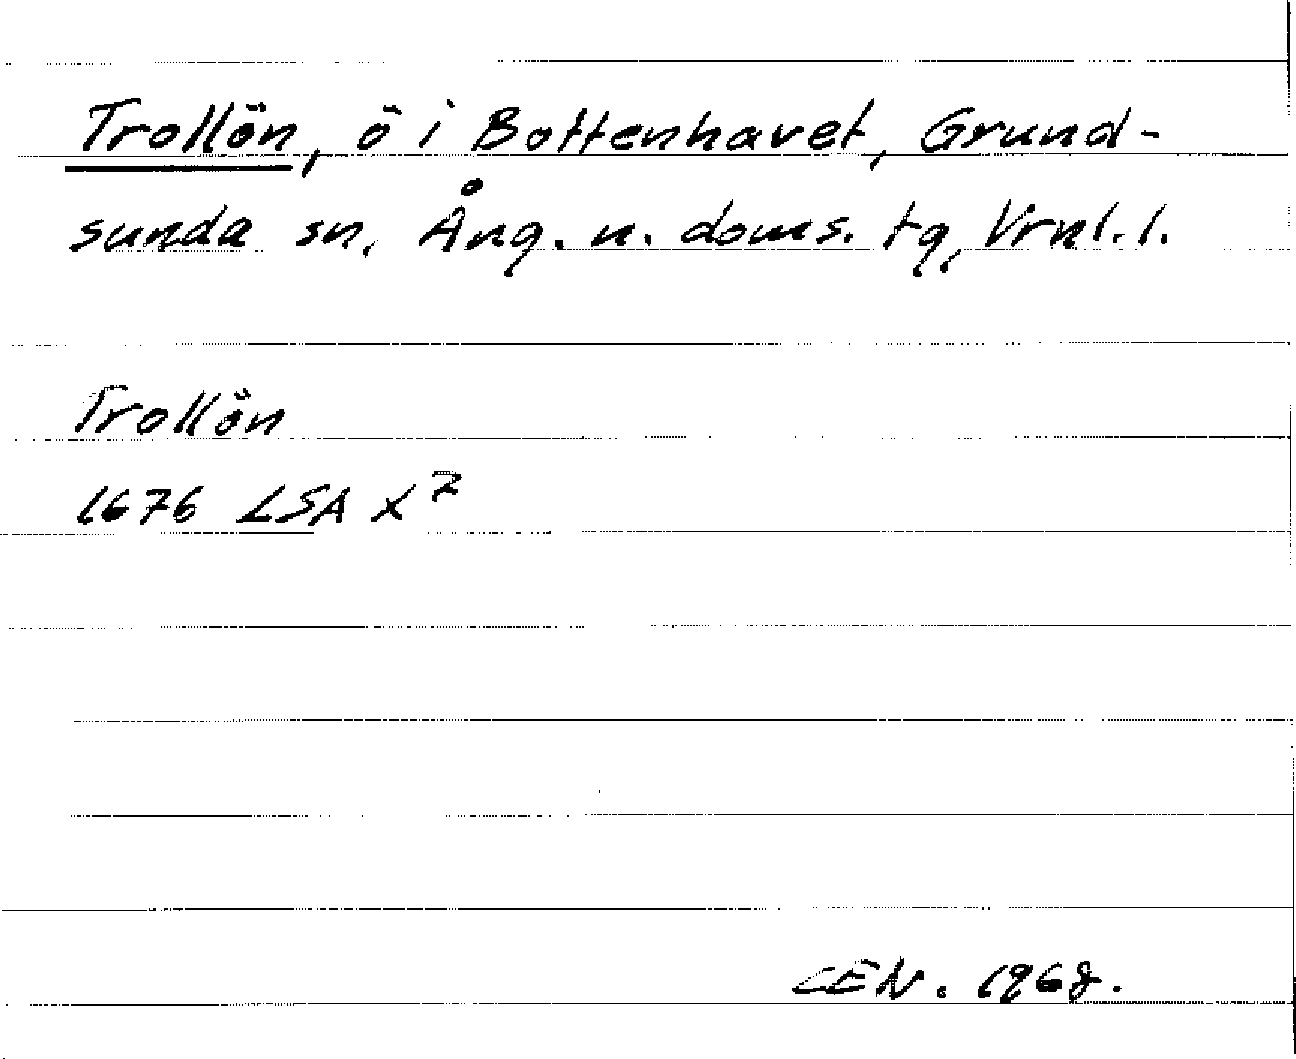 Trollön, ö i Bottenhavet, Grund-
sunda sn, Ång. n. doms. tg, Vrnl. l.
Trollön
1676 LSA X⁷
CEN. 1968.